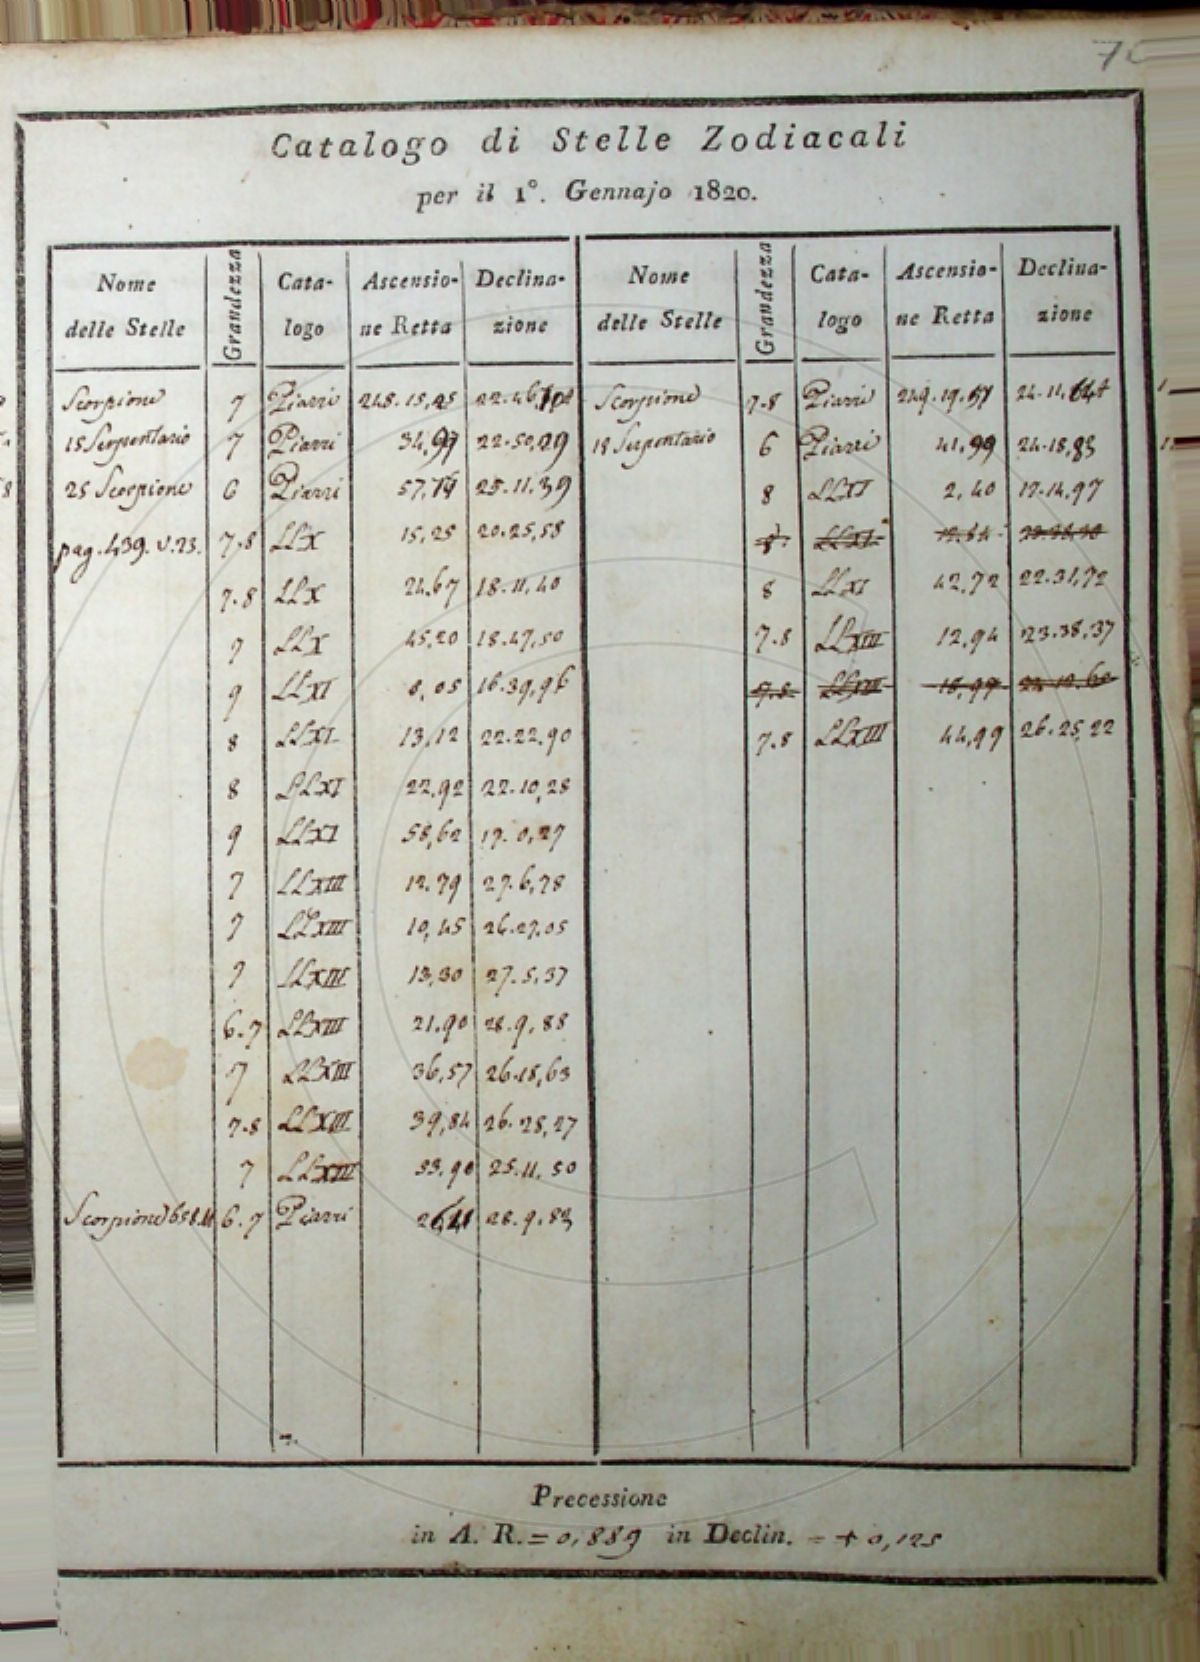 Catalogo di Stelle Zodiacali
per il 1°. Gennajo 1820.
Nome delle Stelle Grandezza Cata-logo Ascensio-ne Retta Declina-zione
Scorpione 7 Piazzi 248.15,
15 Serpentario 7 Piazzi 34,97 22.50,29
25 Scorpione 6 Piazzi 57, 25.11.39
pag. 439. v. 23. 7.8 LLX 15,25 20.25,58
7.8 LLX 24,67 18.11,40
7 LLX 45,20 18.47,50
9 LLXI 0,05 16.39,96
8 LLXI 13,12 22.22,90
8 LLXI 22,92 22.10,28
9 LLXI 58,62 17.0,27
7 LLXIII 12.79 27.6,78
7 LLXIII 10,45 26.27,05
7 LLXIII 13,30 27.5,37
6.7 LLXIII 21,90 28.9,88
7 LLXIII 36,57 26.18,63
7.8 LLXIII 39,84 26.28,27
7 LLXIII 53,90 25.11,50
Scorpione 6.7 Piazzi 28.9,83
Nome delle Stelle Grandezza Cata-logo Ascensio-ne Retta Declina-zione
Scorpione 7.8 Piazzi 249.19,
18 Serpentario 6 Piazzi 41,99 24.18,83
8 LLXI 2,40 17.14,97
8 LLXI
8 LLXI 42,72 22.31,72
7.8 LLXIII 12,94 23.38,37
7.8 LLXIII
7.8 LLXIII 44,99 26.25,22
Precessione
in A. R. = 0,889 in Declin. = + 0,125